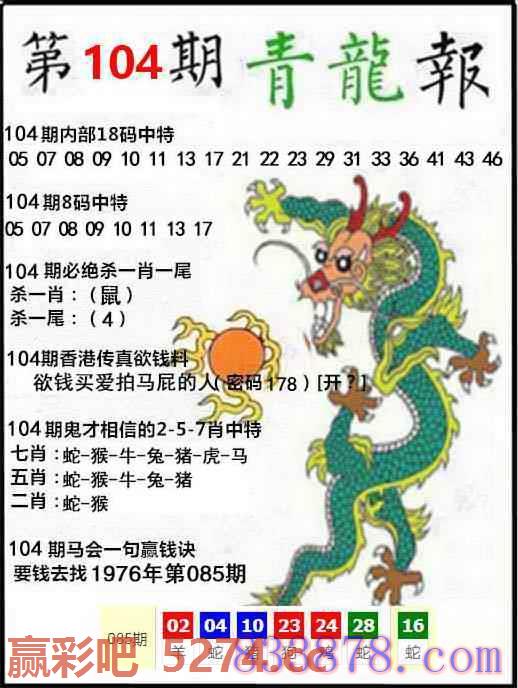 第104期 青龍報
104期内部18码中特
05 07 08 09 10 11 13 17 21 22 23 29 31 33 36 41 43 46
104期8码中特
05 07 08 09 10 11 13 17
104期必绝杀一肖一尾
杀一肖：（鼠）
杀一尾：（4）
104期香港传真欲钱料
欲钱买爱拍马屁的人(密码178）[开？]
104期鬼才相信的2-5-7肖中特
七肖：蛇-猴-牛-兔-猪-虎-马
五肖：蛇-猴-牛-兔-猪
二肖：蛇-猴
104期马会一句赢钱诀
要钱去找1976年第085期
085期 02 04 10 23 24 28 16
羊 蛇 猪 狗 鸡 蛇 蛇
赢彩吧
838878.com